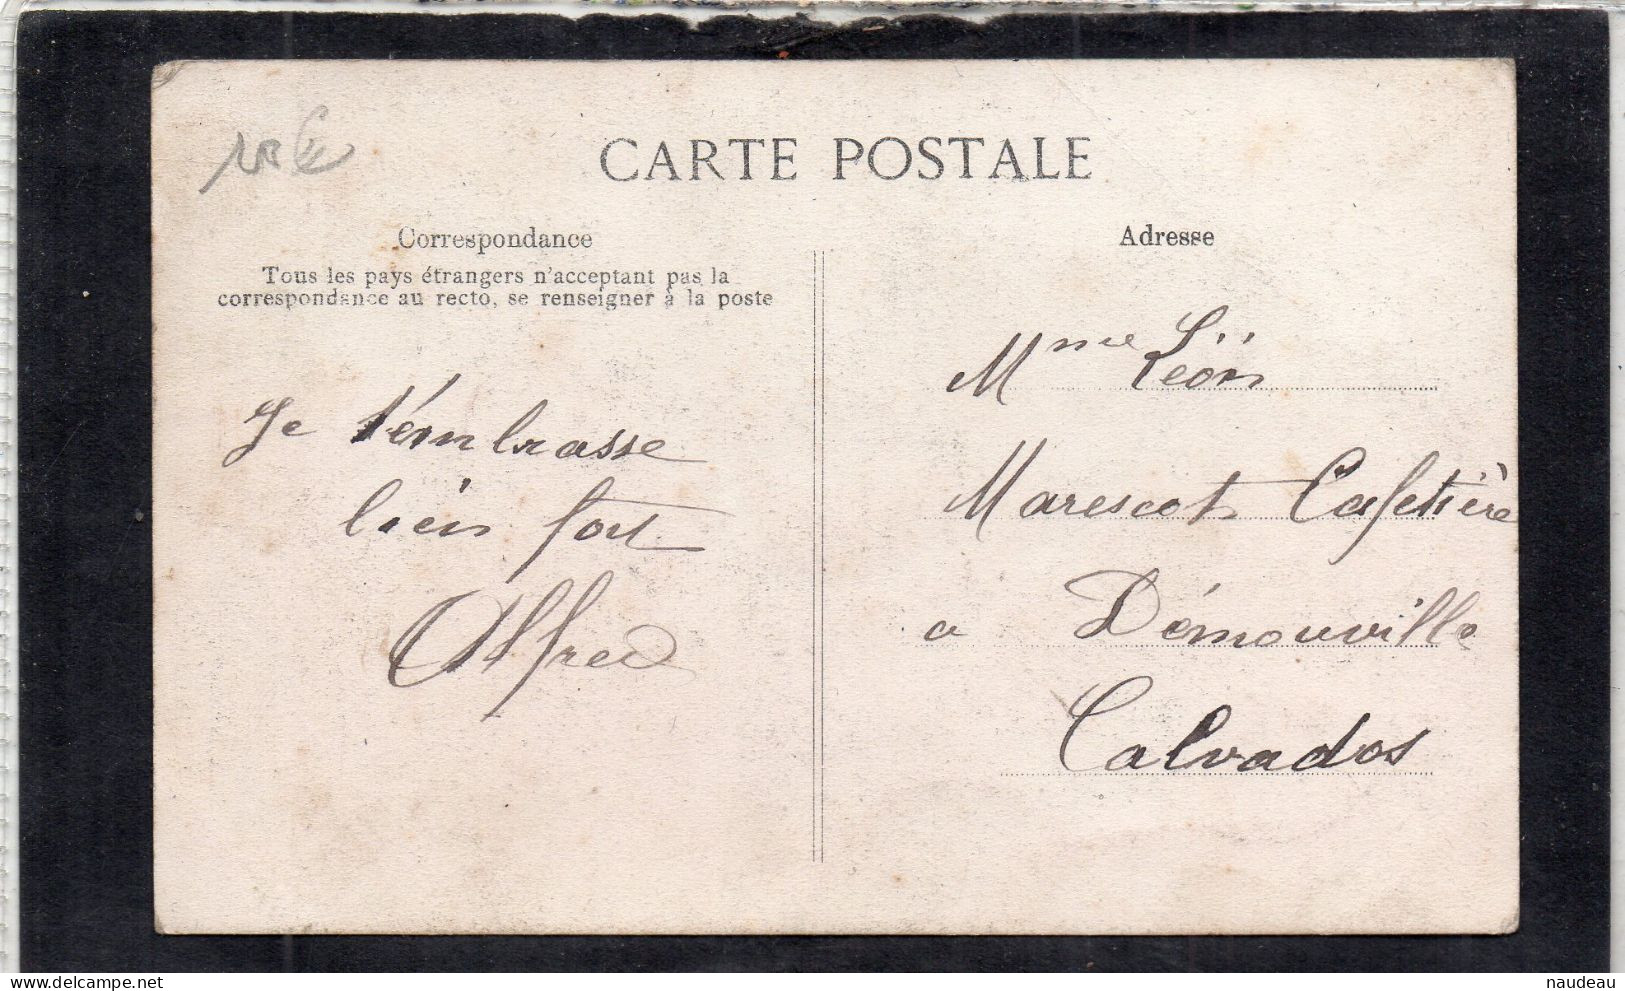 CARTE POSTALE
Correspondance
Tous les pays étrangers n'acceptant pas la
correspondance au recto, se renseigner à la poste
Je t'embrasse
bien fort
Alfred
Adresse
Mme Léon
Marescot Cafetière
a Démouville
Calvados
naudeau